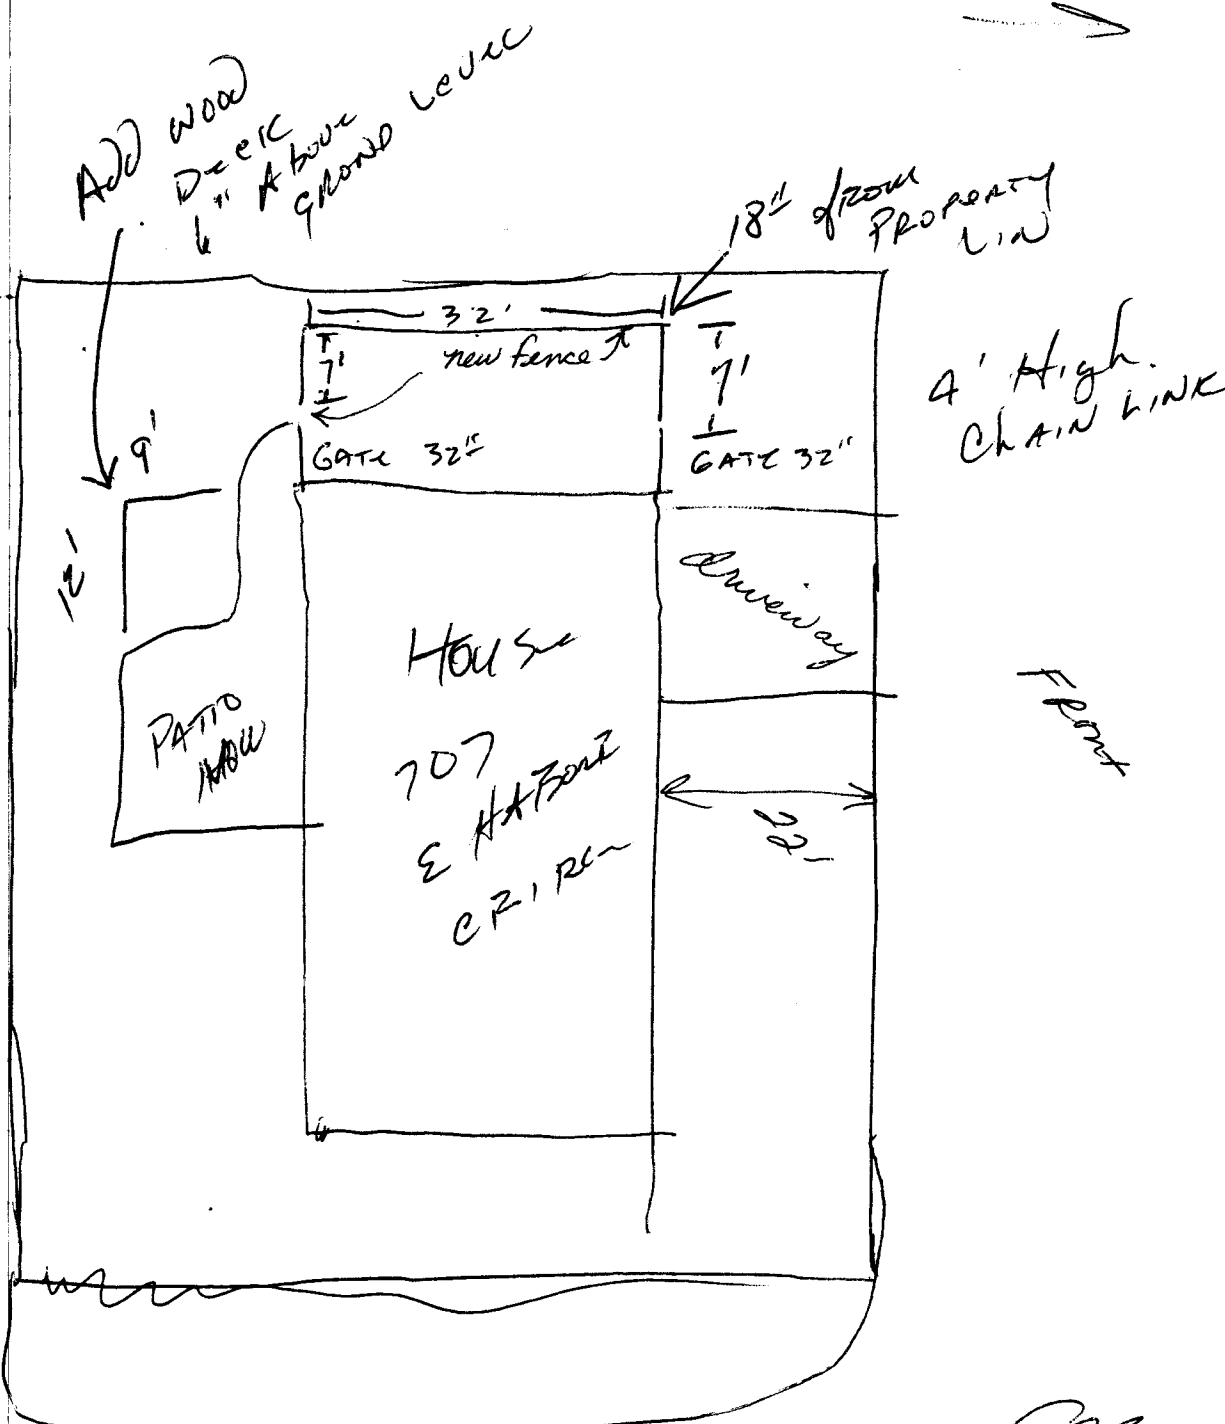 ADD WOOD
Deck
6" Above
GROND LEVEL
18" from
PROPERTY
LIN
32'
new fence
7'
7'
4' High.
CHAIN LINK
GATE 32"
GATE 32"
9'
12'
driveway
House
FRont
PATIO
707
22'
E